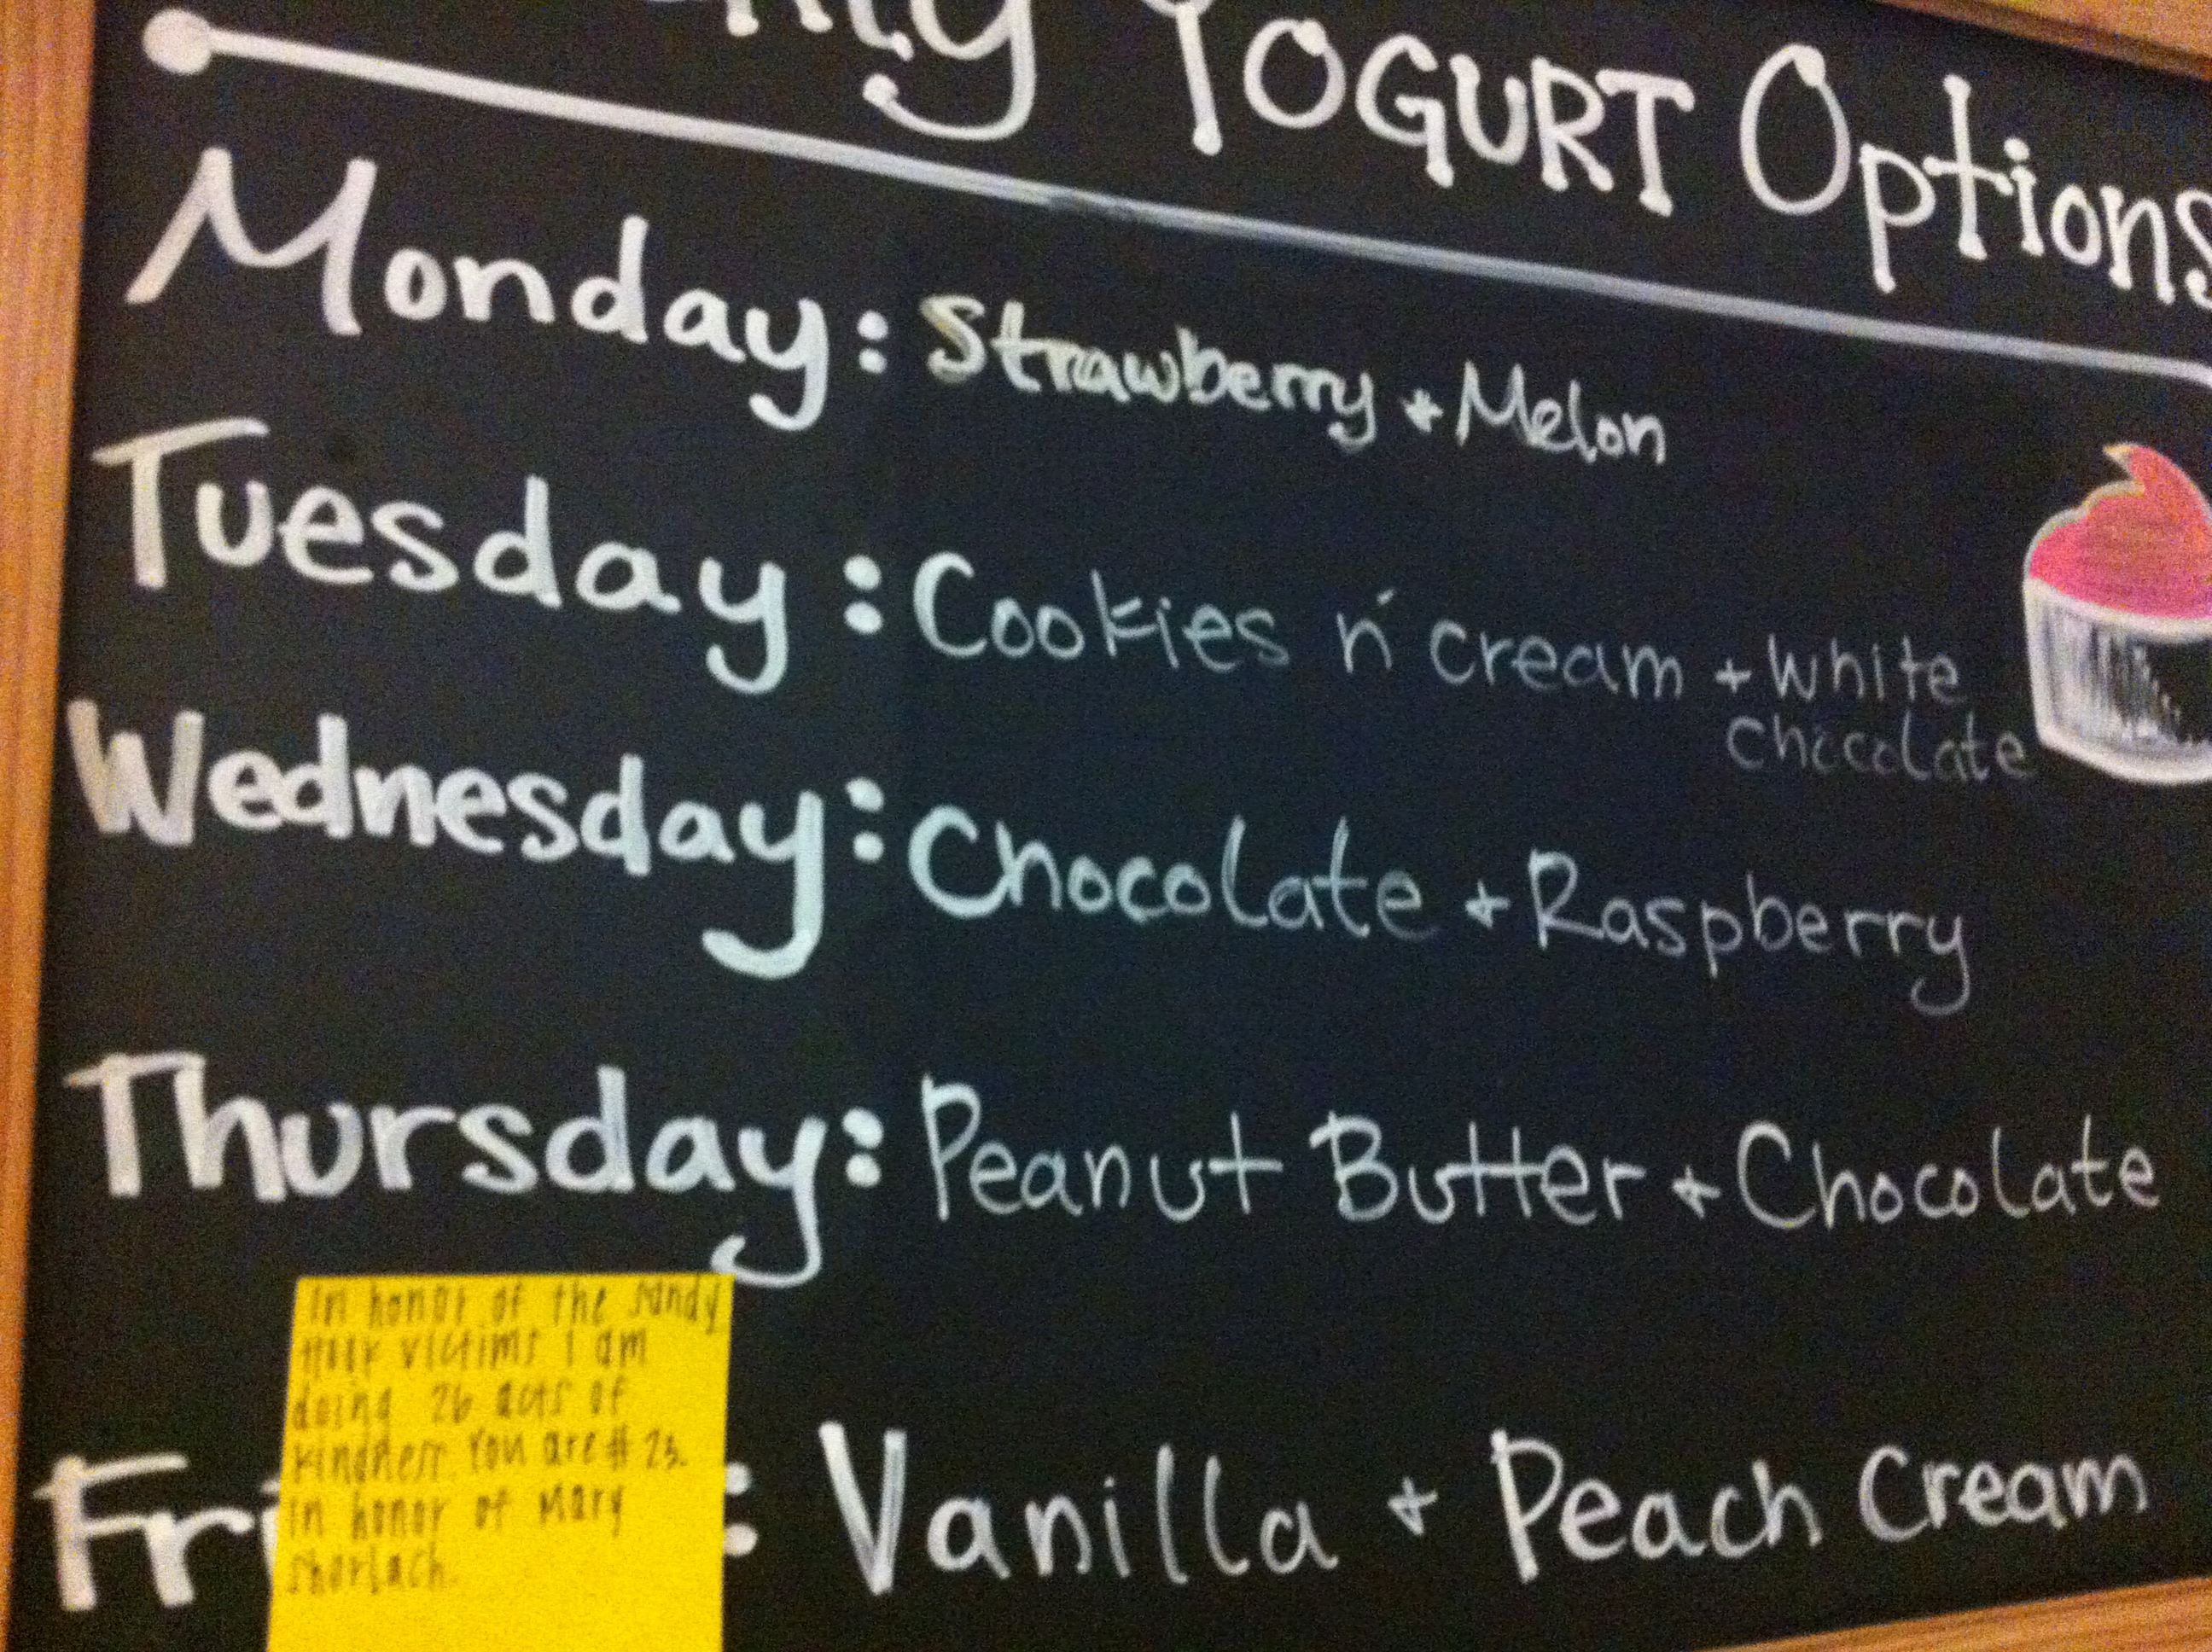 YOGURT Options
Monday: Strawberry + Melon
Tuesday: Cookies n' cream + White
Chocolate
Wednesday: Chocolate + Raspberry
Thursday: Peanut Butter + Chocolate
In honor of the Sandy
Hook victims I am
doing 26 acts of
kindness. You are # 23.
In honor of Mary
Sherlach.
Fri : Vanilla + Peach Cream